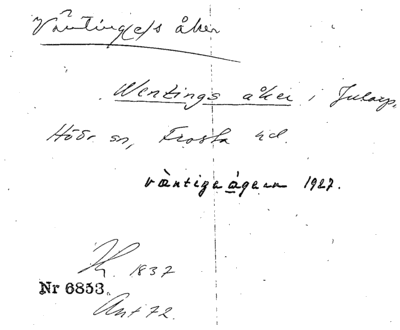 Väntinge/s åker
Wentings åker i Jularp,
Höör sn, Frosta hd.
väntiga ågern 1927.
K. 1837
Nr 6853.
Ant 72.